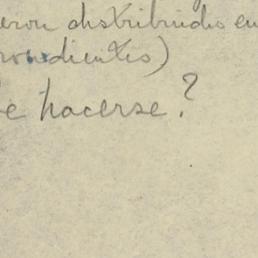 eron distribuidos en
rondientes)
e hacerse?